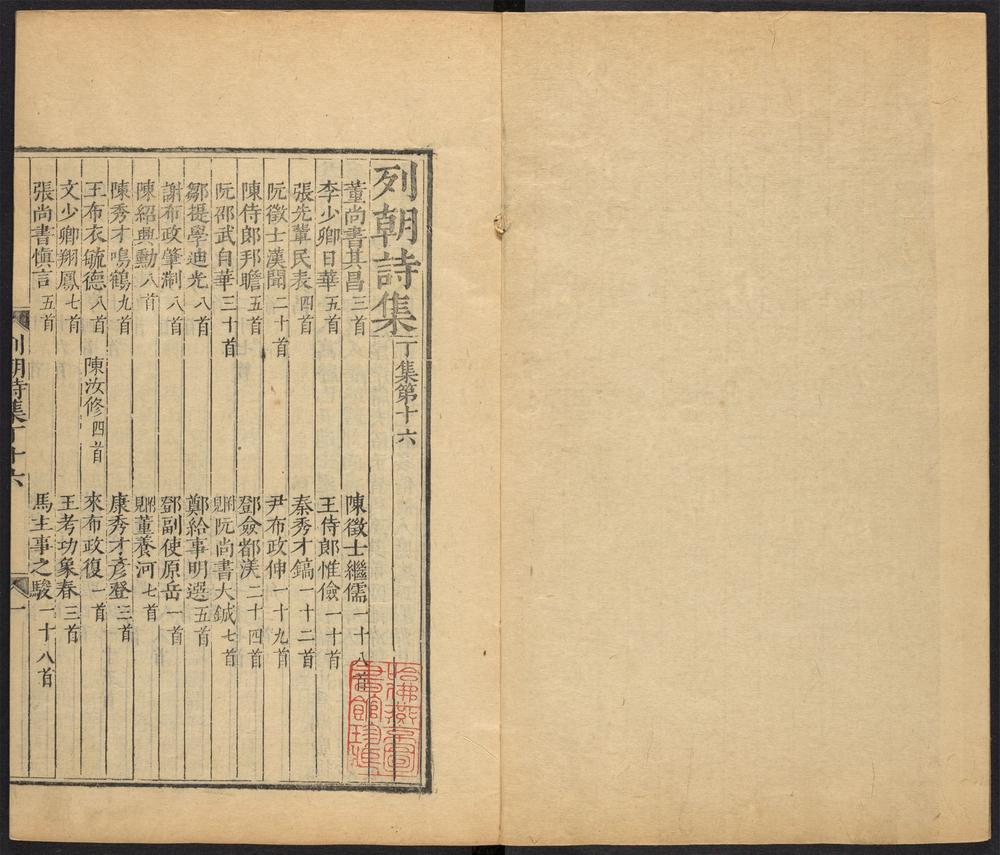 列朝詩集 丁集第十六
董尚書其昌三首 陳徵士繼儒一十八首
李少卿日華五首 王侍郎惟儉一十首
張先輩民表四首 秦秀才鎬一十二首
阮徵士漢聞二十首 尹布政伸一十九首
陳侍郎邦瞻五首 鄧僉都渼二十四首
阮邵武自華三十首 附見阮尚書大鋮七首
鄒提學迪光八首 鄭給事明選五首
謝布政肇淛八首 鄧副使原岳一首
陳紹興勳八首 附見董養河七首
陳秀才鳴鶴九首 康秀才彥登三首
王布衣毓德八首 陳汝修四首 來布政復一首
文少卿翔鳳七首 王考功象春三首
張尚書愼言五首 馬主事之駿一十八首
列朝詩集丁十六 一
哈佛燕京圖書館珍藏